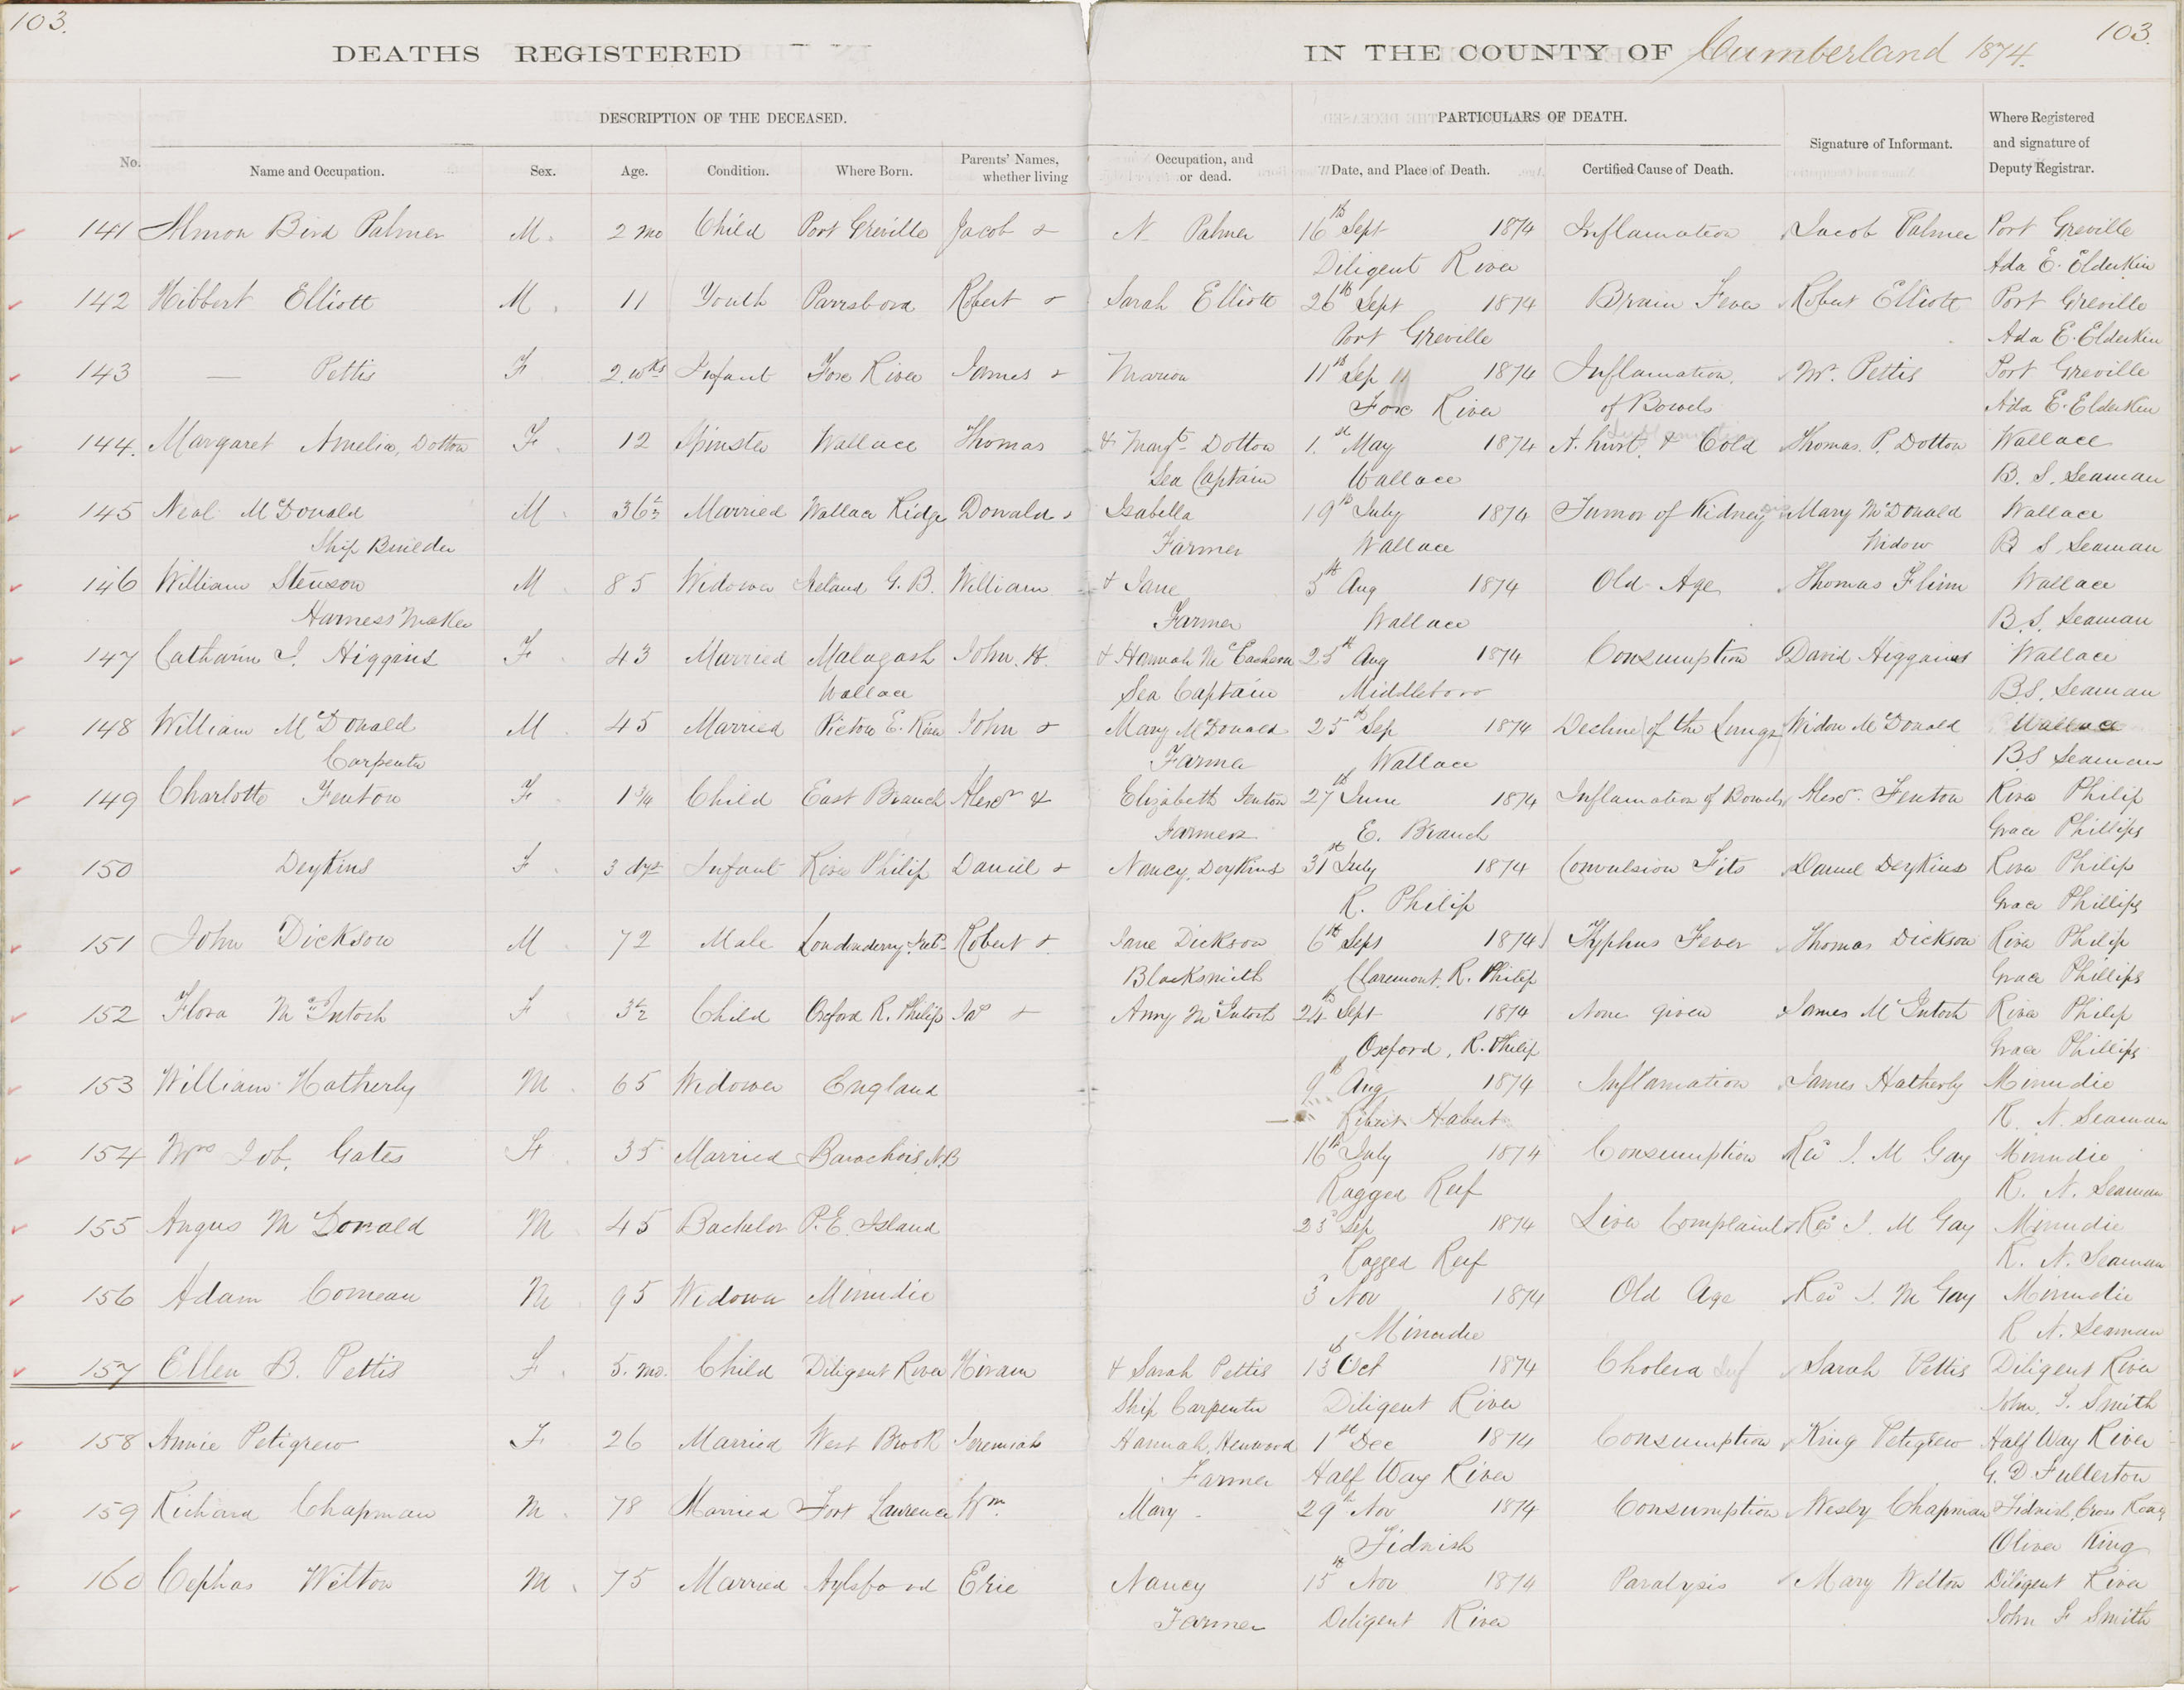 103.
103.
DEATHS REGISTERED
IN THE COUNTY OF Cumberland 1874.
DESCRIPTION OF THE DECEASED.
PARTICULARS OF DEATH.
Signature of Informant.
Where Registered and signature of Deputy Registrar.
No.
Name and Occupation.
Sex.
Age.
Condition.
Where Born.
Parents' Names, whether living
Occupation, and or dead.
Date, and Place of Death.
Certified Cause of Death.
141 Almon Bird Palmer M. 2 mo Child Port Greville Jacob & N. Palmer 16th Sept 1874 Inflamation Jacob Palmer Port Greville
Diligent River Ada E. Elderkin
142 Hibbert Elliott M. 11 Youth Parrsboro Robert & Sarah Elliott 26th Sept 1874 Brain Fever Robert Elliott Port Greville
Port Greville Ada E. Elderkin
143 — Pettis F 2 wks Infant Fox River James & Marion 11th Sep 11 1874 Inflamation Mr. Pettis Port Greville
Fox River of Bowels Ada E. Elderkin
144. Margaret Amelia, Dotton F. 12 Spinster Wallace Thomas & Margt Dotton 1.st May 1874 A. hurt & Cold Thomas. P. Dotton Wallace
Sea Captain Wallace B. S. Seaman
145 Neal McDonald M. 36½ Married Wallace Ridge Donald & Isabella 19th July 1874 Tumor of Kidney Mary McDonald Wallace
Ship Builder Farmer Wallace Widow B S Seaman
146 William Stenson M. 85 Widower Ireland G. B. William & Jane 5th Aug 1874 Old Age Thomas Flinn Wallace
Harness Maker Farmer Wallace B. S. Seaman
147 Catharin J. Higgins F. 43 Married Malagash John. H. & Hannah McEachern 25th Aug 1874 Consumption David Higgins Wallace
Wallace Sea Captain Middleboro B.S. Seaman
148 William McDonald M. 45 Married Pictou E. River John & Mary McDonald 25th Sep 1874 Decline of the Lungs Widow McDonald Wallace
Carpenter Farmer Wallace B.S Seaman
149 Charlotte Fenton F. 1¾ Child East Branch Alexr & Elizabeth Fenton 27th June 1874 Inflamation of Bowels Alexr. Fenton River Philip
Farmer E. Branch Grace Phillips
150 Deykins F. 3 dys Infant River Philip Daniel & Nancy Deykins 31st July 1874 Convulsion Fits Daniel Deykins River Philip
R. Philip Grace Phillips
151 John Dickson M. 72 Male Londonderry Robert & Jane Dickson 6th Sept 1874 Typhus Fever Thomas Dickson River Philip
Blacksmith Claremont, R. Philip Grace Phillips
152 Flora McIntosh F 3½ Child Oxford R. Philip Jas & Anny McIntosh 24th Sept 1874 None given James McIntosh River Philip
Oxford, R. Philip Grace Phillips
153 William Hatherly M. 65 Widower England 9th Aug 1874 Inflamation James Hatherly Minudie
Habert R. N. Seaman
154 Mrs Job. Gates F. 35 Married Barochois N.B 16th July 1874 Consumption Rev J. M Gay Minudie
Ragged Reef R. N. Seaman
155 Angus McDonald M. 45 Bachelor P. E. Island 25 Sep 1874 Liver Complaint Rev J. M Gay Minudie
Ragged Reef R. N. Seaman
156 Adam Comeau M. 95 Widower Minudie 3 Nov 1874 Old Age Rev J. M Gay Minudie
Minudie R N. Seaman
157 Ellen B. Pettis F. 5. mo. Child Diligent River Hiram & Sarah Pettis 13th Oct 1874 Cholera Inf Sarah Pettis Diligent River
Ship Carpenter Diligent River John. F. Smith
158 Annie Petigrew F 26 Married West Brook Jeremiah Hannah, Henwood 1st Dec 1874 Consumption King Petigrew Half Way River
Farmer Half Way River G. D. Fullerton
159 Richard Chapman M. 78 Married Fort Laurence Wm. Mary 29th Nov 1874 Consumption Wesley Chapman Tidnish, Cross Roads
Tidnish Oliver King
160 Cephas Welton M. 75 Married Aylsford Eric Nancy 15th Nov 1874 Paralysis Mary Welton Diligent River
Farmer Diligent River John F Smith